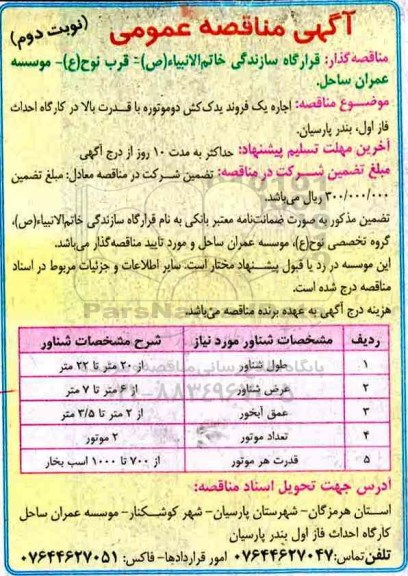 آگهی مناقصه عمومی (نوبت دوم)
مناقصه‌گذار: قرارگاه سازندگی خاتم‌الانبیاء(ص)- قرب نوح(ع)- موسسه
عمران ساحل.
موضوع مناقصه: اجاره یک فروند یدک‌کش دوموتوره با قدرت بالا در کارگاه احداث
فاز اول، بندر پارسیان.
آخرین مهلت تسلیم پیشنهاد: حداکثر به مدت ۱۰ روز از درج آگهی
مبلغ تضمین شرکت در مناقصه: تضمین شرکت در مناقصه معادل: مبلغ تضمین
۳۰۰/۰۰۰/۰۰۰ ریال می‌باشد.
تضمین مذکور به صورت ضمانت‌نامه معتبر بانکی به نام قرارگاه سازندگی خاتم‌الانبیاء(ص)،
گروه تخصصی نوح(ع)، موسسه عمران ساحل و مورد تایید مناقصه‌گذار می‌باشد.
این موسسه در رد یا قبول پیشنهاد مختار است. سایر اطلاعات و جزئیات مربوط در اسناد
مناقصه درج شده است.
هزینه درج آگهی به عهده برنده مناقصه می‌باشد.
ردیف مشخصات شناور مورد نیاز شرح مشخصات شناور
۱ طول شناور از ۲۰ متر تا ۲۲ متر
۲ عرض شناور از ۶ متر تا ۷ متر
۳ عمق آبخور از ۲ متر تا ۳/۵ متر
۴ تعداد موتور ۲ موتور
۵ قدرت هر موتور از ۷۰۰ تا ۱۰۰۰ اسب بخار
آدرس جهت تحویل اسناد مناقصه:
استان هرمزگان- شهرستان پارسیان- شهر کوشکنار- موسسه عمران ساحل
کارگاه احداث فاز اول بندر پارسیان
تلفن تماس: ۰۷۶۴۴۶۲۷۰۴۷ امور قراردادها- فاکس: ۰۷۶۴۴۶۲۷۰۵۱